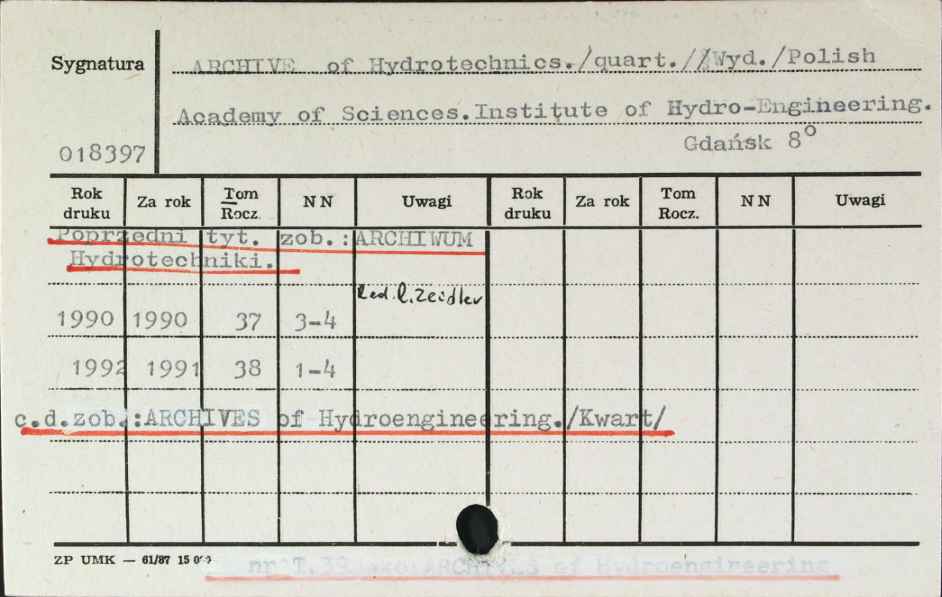 Sygnatura
ARCHIVE of Hydrotechnics./quart.//Wyd./Polish
Academy of Sciences.Institute of Hydro-Engineering.
018397
Gdańsk 8°
Rok druku Za rok Tom Rocz. NN Uwagi Rok druku Za rok Tom Rocz. NN Uwagi
Poprzedni tyt. zob.:ARCHIWUM
Hydrotechniki.
Red. R. Zeidler
1990 1990 37 3-4
1992 1991 38 1-4
c.d.zob.:ARCHIVES of Hydroengineering./Kwart/
ZP UMK — 61/87 15 000
T.39 ARCHIVES of Hydroengineering